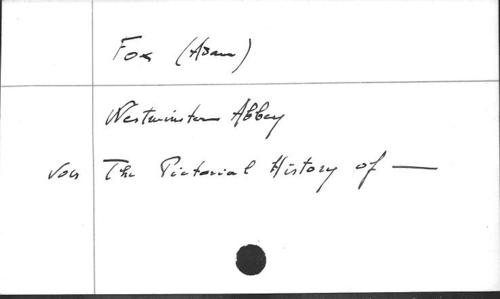 Fox (Adam)
Westminster Abbey
The Pictorial History of —